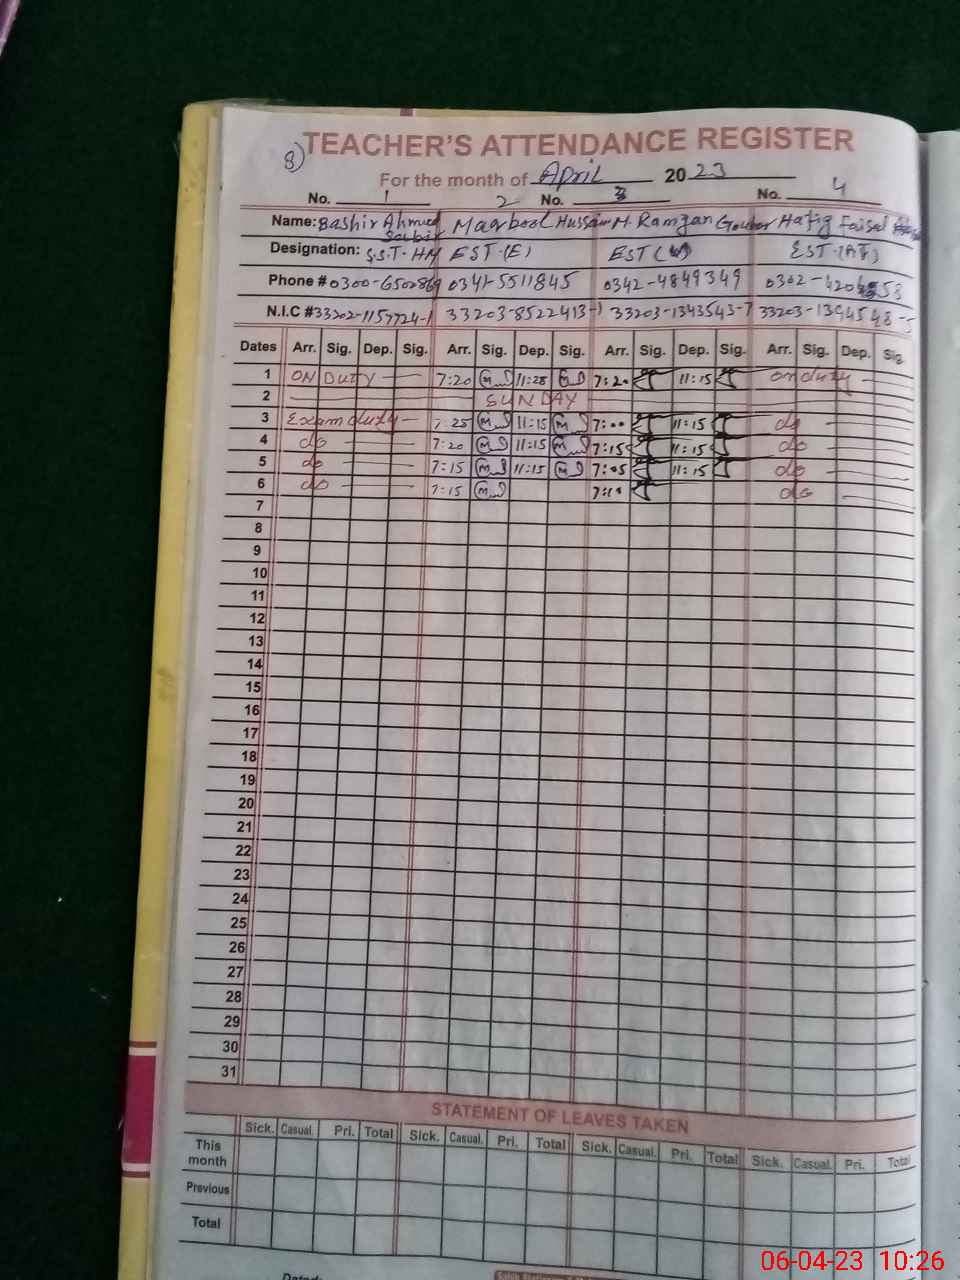 8)
TEACHER'S ATTENDANCE REGISTER
For the month of April 2023
No. 1 2 No. 3 No. 4
Name: Bashir Ahmed Sabir Maqbool Hussain M. Ramzan Gouher Hafiz Faisal
Designation: S.S.T-HM EST.(E) EST EST.(AT)
Phone # 0300-6502869 0341-5511845 0342-4849349 0302-
N.I.C # 33202-1157724-1 33203-8522413-1 33203-1343543-7 33203-1394548-
Dates Arr. Sig. Dep. Sig. Arr. Sig. Dep. Sig. Arr. Sig. Dep. Sig. Arr. Sig. Dep. Sig.
1 ON DUTY 7:20 11:28 7:20 11:15 on duty
2 SUNDAY
3 Exam duty 7:25 11:15 7:00 11:15 do
4 do 7:20 11:15 7:15 11:15 do
5 do 7:15 11:15 7:05 11:15 do
6 do 7:15 7:10 do
7
8
9
10
11
12
13
14
15
16
17
18
19
20
21
22
23
24
25
26
27
28
29
30
31
STATEMENT OF LEAVES TAKEN
Sick. Casual. Pri. Total Sick. Casual. Pri. Total Sick. Casual. Pri. Total Sick. Casual. Pri. Total
This month
Previous
Total
Dated:
06-04-23 10:26